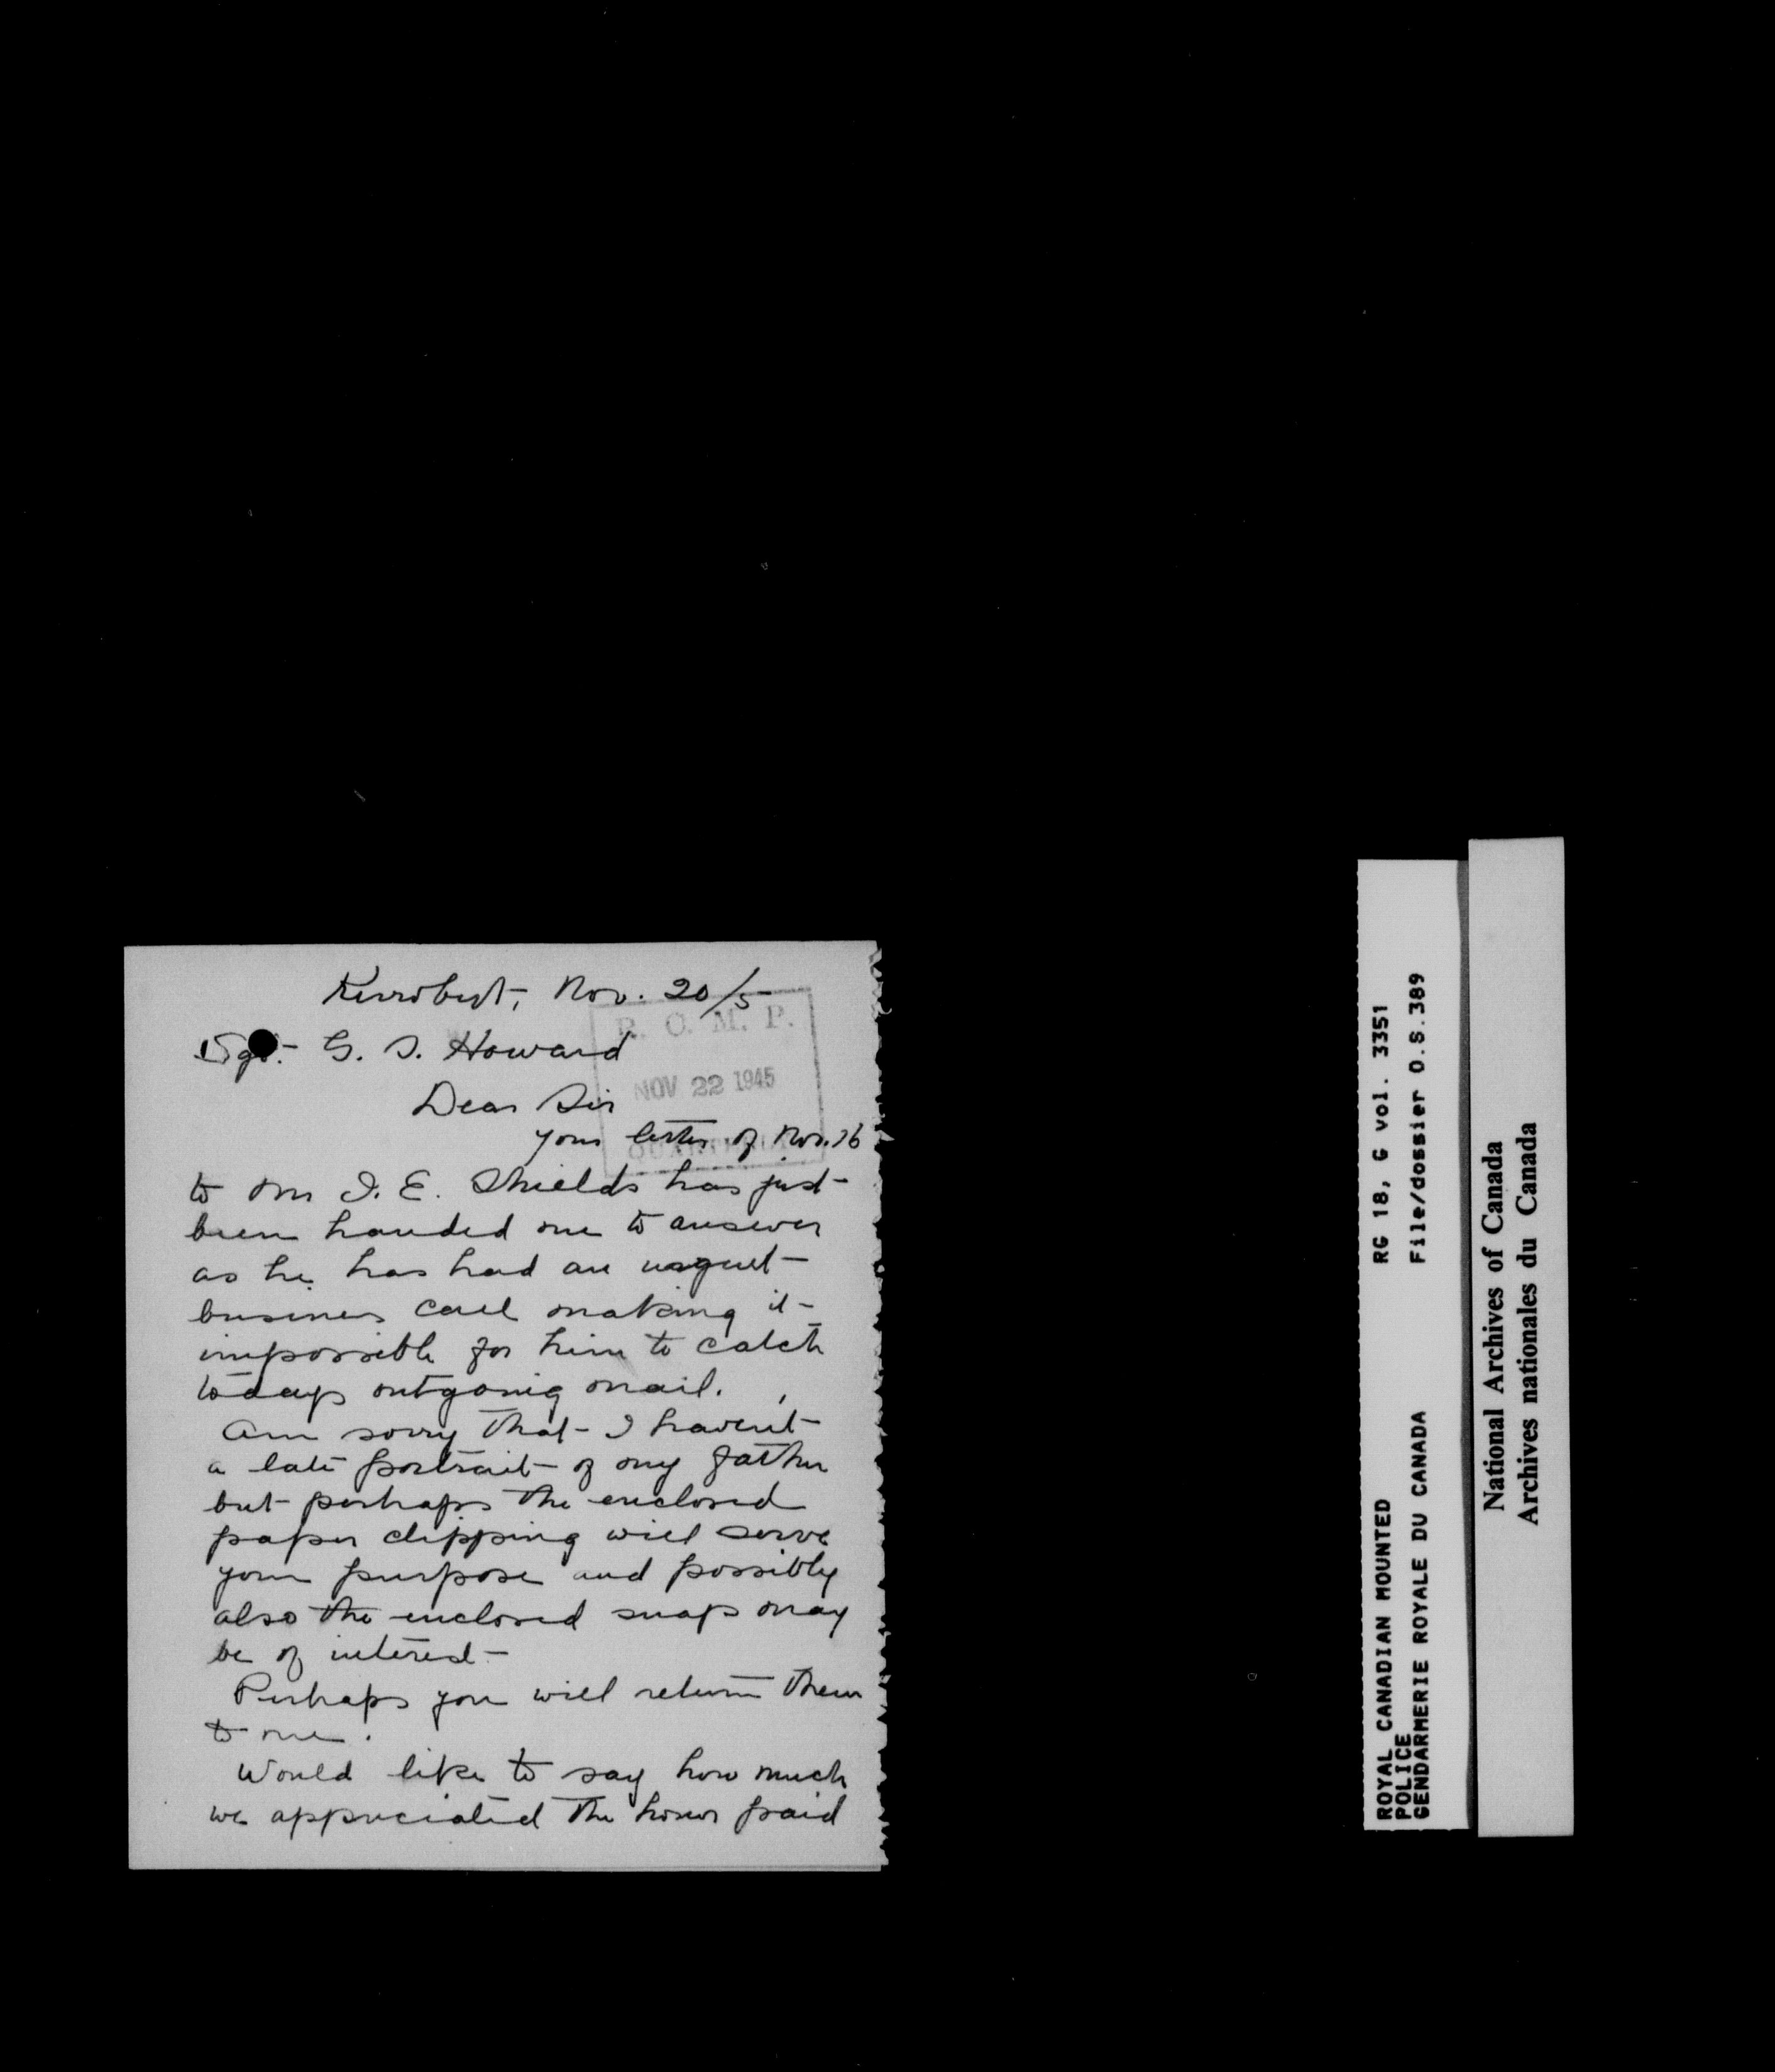 Kerrobert, Nov. 20/5
Sgt. G. S. Howard
R. C. M. P.
NOV 22 1945
Dear Sir
Your letter of Nov. 16
to Mr J. E. Shields has just
been handed me to answer
as he has had an urgent
business call making it
impossible for him to catch
todays outgoing mail.
Am sorry that I haven't
a late portrait of my father
but perhaps the enclosed
paper clipping will serve
your purpose and possibly
also the enclosed snaps may
be of interest
Perhaps you will return them
to me.
Would like to say how much
we appreciated the honor paid
ROYAL CANADIAN MOUNTED
POLICE
GENDARMERIE ROYALE DU CANADA
RG 18, G vol. 3351
File/dossier O.S.389
National Archives of Canada
Archives nationales du Canada